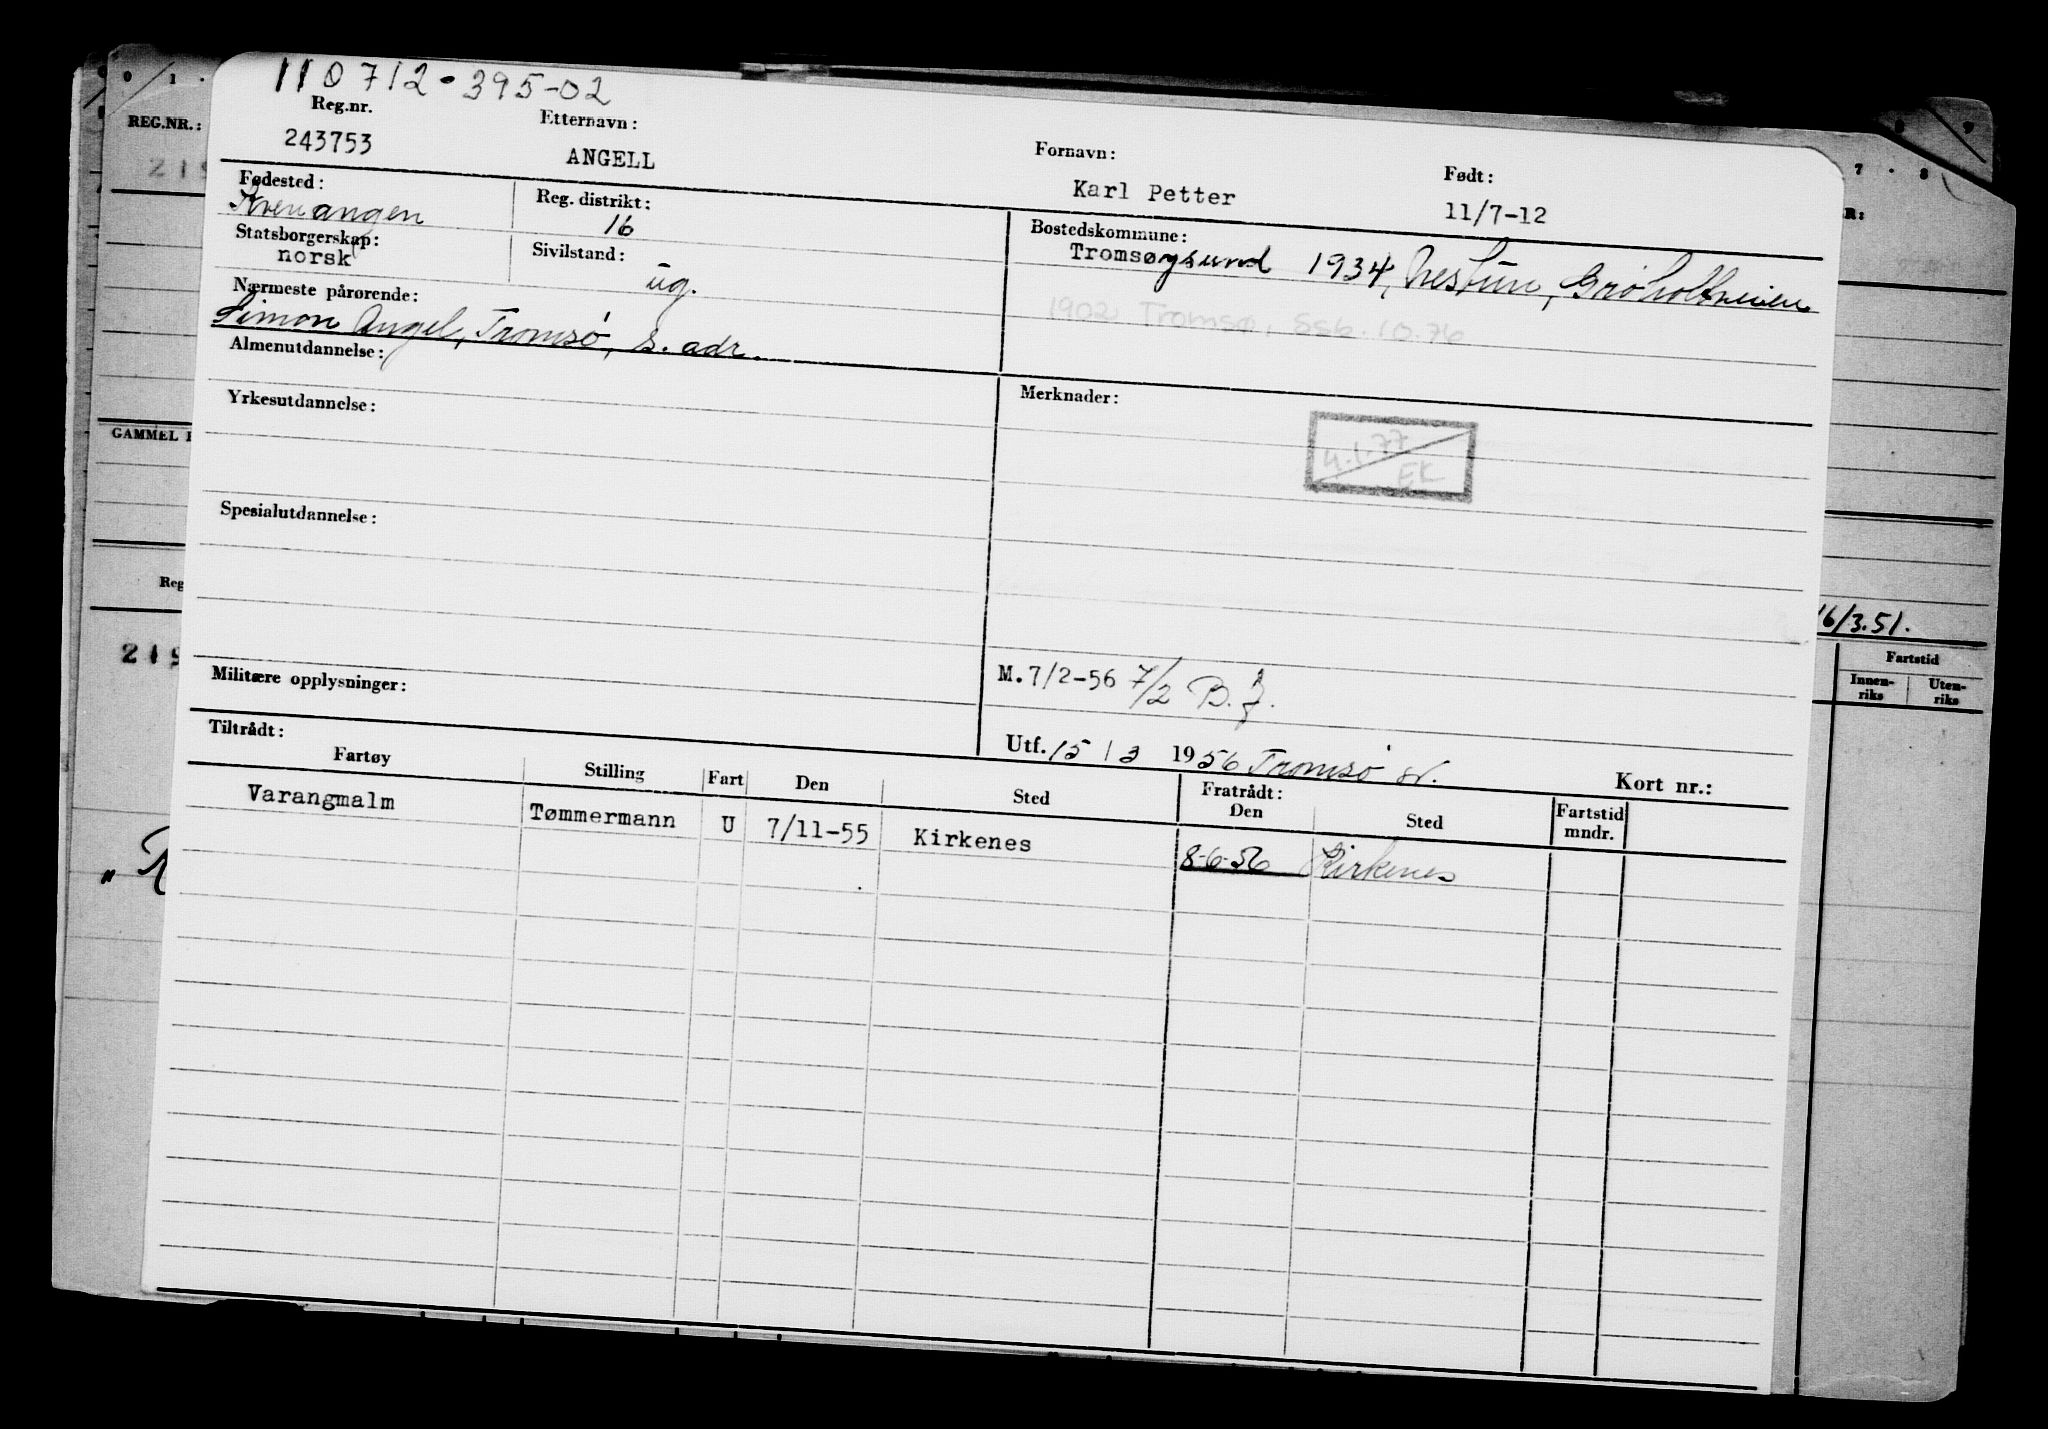 110712-395-02
Reg.nr. Etternavn: Fornavn: Født:
243753 ANGELL Karl Petter 11/7-12
Fødested: Reg. distrikt: Bostedskommune:
Kvenangen 16 Tromsøysund 1934, Nestun, Grøholtveien
Statsborgerskap: Sivilstand:
norsk ug.
1902 Tromsø, SSB. 10.76
Nærmeste pårørende:
Simon Angel, Tromsø, s. adr.
Almenutdannelse:
Yrkesutdannelse: Merknader:
4.1.77
EK
Spesialutdannelse:
Militære opplysninger: M.7/2-56 7/2 B.
Utf. 15 / 3 1956 Tromsø Kort nr.:
Tiltrådt: Fratrådt:
Fartøy Stilling Fart Den Sted Den Sted Fartstid mndr.
Varangmalm Tømmermann U 7/11-55 Kirkenes 8-6-56 Kirkenes
0 1 .
REG.NR.:
219
GAMMEL
Reg
219
9
7 . 8
R:
16/3.51.
Fartstid
Innen-riks Uten-riks